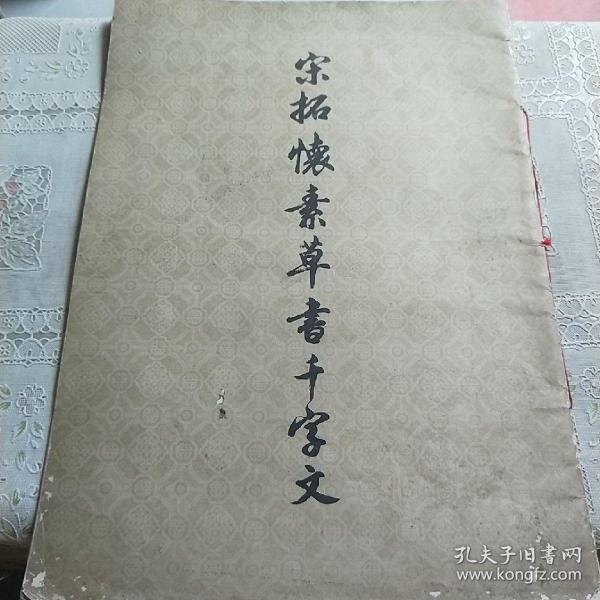 宋拓懷素草書千字文
孔夫子旧書网
www.kongfz.com